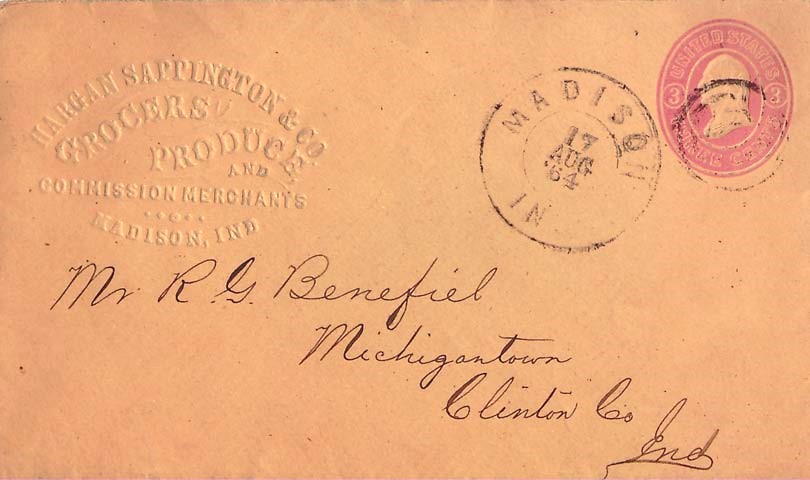 HARGAN SAPPINGTON & CO.
GROCERS
PRODUCE
AND
COMMISSION MERCHANTS
MADISON, IND
MADISON
17
AUG
'64
IN
UNITED STATES
3 3
CENTS
Mr R. G. Benefiel
Michigantown
Clinton Co
Ind